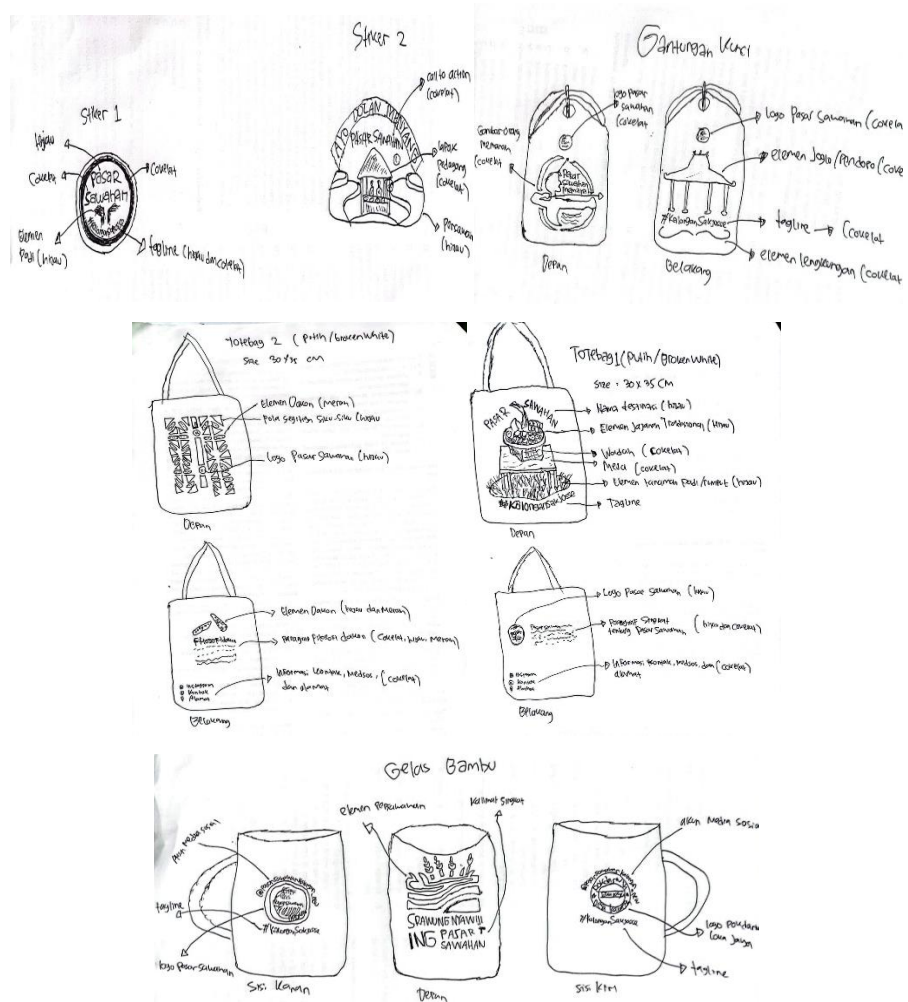 Stiker 1
Hijau
Cokelat
Cokelat
Pasar
Sawahan
Elemen
Padi (hijau)
tagline (hijau dan cokelat)
Stiker 2
AYO DOLAN MENYANG
PASAR SAWAHAN
call to action
(cokelat)
lapak
pedagang
(cokelat)
Persawahan
(hijau)
Gantungan Kunci
logo pasar
sawahan
(cokelat
Gambar orang
memanah
(cokelat
Pasar
Sawahan
memanah
Depan
logo Pasar Sawahan (cokelat
elemen Joglo/Pendopo (cove
#KalanganSakJose
tagline
(cokelat
elemen lengkungan (cokelat
Belakang
Totebag 2 (Putih/brokenwhite)
Size 30x35 cm
Elemen Dakon (Merah)
Pola segitiga siku-siku (hijau
Logo Pasar Sawahan (hijau)
Depan
Elemen Dakon (hijau dan Merah)
Paragraf Filosofi dakon (cokelat, hijau, Merah)
Informasi Kontak, Medsos, (cokelat)
dan alamat
Kontak
Alamat
Belakang
Totebag 1 (Putih/BrokenWhite)
Size : 30x35 CM
PASAR SAWAHAN
Nama destinasi (hijau)
Elemen Jajanan Tradisional (hijau)
Wadah (cokelat)
Meja (cokelat)
Elemen tanaman padi/rumput (hijau)
Tagline
Depan
Logo Pasar Sawahan (hijau)
Paragraf Singkat
tentang Pasar Sawahan
(hijau dan cokelat)
Informasi Kontak, Medsos, dan (cokelat)
alamat
Kontak
Alamat
Belakang
Gelas Bambu
akun media sosial
tagline
logo Pasar sawahan
Sisi Kanan
elemen Persawahan
Kalimat Singkat
SRAWUNG NYAWIJI
ING PASAR
SAWAHAN
Depan
akun Media Sosia
logo Pokdarwis
tagline
Sisi Kiri